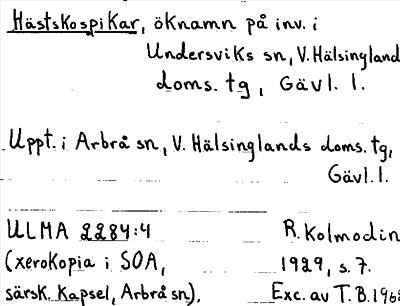 Hästskospikar, öknamn på inv. i
Undersviks sn, V. Hälsingland
doms. tg, Gävl. l.
Uppt. i Arbrå sn, V. Hälsinglands doms. tg,
Gävl. l.
ULMA 2284:4 R. Kolmodin
(xerokopia i SOA, 1929, s. 7.
särsk. kapsel, Arbrå sn). Exc. av T. B. 196